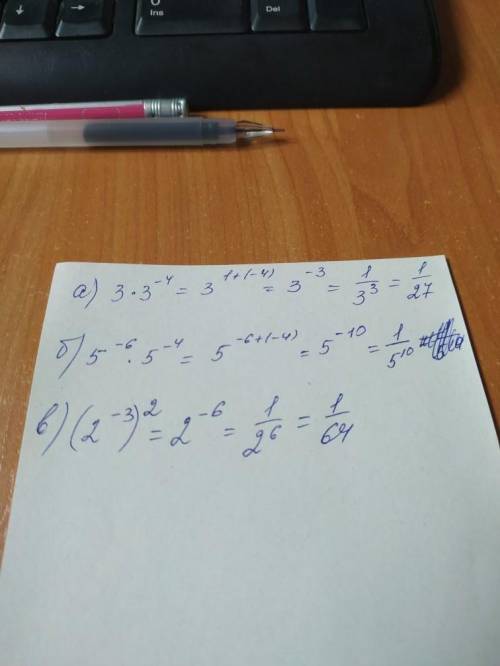 ↓ → 0 Ins Del
а) 3 · 3⁻⁴ = 3¹⁺⁽⁻⁴⁾ = 3⁻³ = 1/3³ = 1/27
б) 5⁻⁶ · 5⁻⁴ = 5⁻⁶⁺⁽⁻⁴⁾ = 5⁻¹⁰ = 1/5¹⁰
в) (2⁻³)² = 2⁻⁶ = 1/2⁶ = 1/64